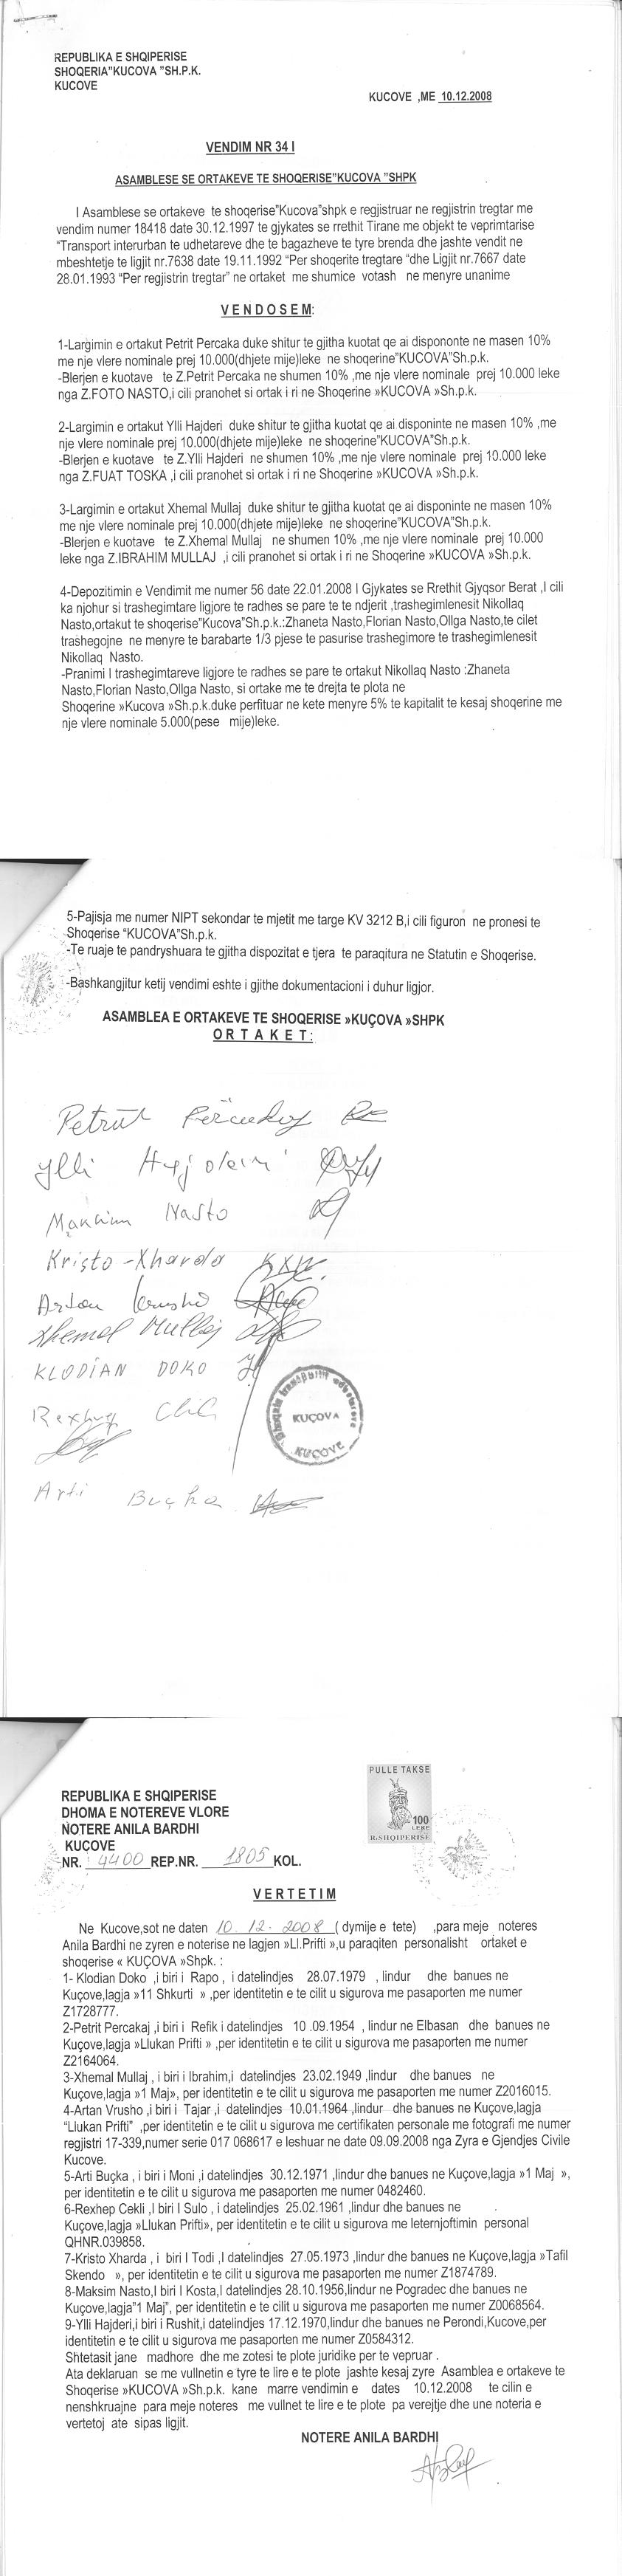 REPUBLIKA E SHQIPERISE
SHOQERIA"KUCOVA "SH.P.K.
KUCOVE
KUCOVE ,ME 10.12.2008
VENDIM NR 34 I
ASAMBLESE SE ORTAKEVE TE SHOQERISE"KUCOVA "SHPK
I Asamblese se ortakeve te shoqerise"Kucova"shpk e regjistruar ne regjistrin tregtar me
vendim numer 18418 date 30.12.1997 te gjykates se rrethit Tirane me objekt te veprimtarise
"Transport interurban te udhetareve dhe te bagazheve te tyre brenda dhe jashte vendit ne
mbeshtetje te ligjit nr.7638 date 19.11.1992 "Per shoqerite tregtare "dhe Ligjit nr.7667 date
28.01.1993 "Per regjistrin tregtar" ne ortaket me shumice votash ne menyre unanime
V E N D O S E M:
1-Largimin e ortakut Petrit Percaka duke shitur te gjitha kuotat qe ai dispononte ne masen 10%
me nje vlere nominale prej 10.000(dhjete mije)leke ne shoqerine"KUCOVA"Sh.p.k.
-Blerjen e kuotave te Z.Petrit Percaka ne shumen 10% ,me nje vlere nominale prej 10.000 leke
nga Z.FOTO NASTO,i cili pranohet si ortak i ri ne Shoqerine »KUCOVA »Sh.p.k.
2-Largimin e ortakut Ylli Hajderi duke shitur te gjitha kuotat qe ai disponinte ne masen 10% ,me
nje vlere nominale prej 10.000(dhjete mije)leke ne shoqerine"KUCOVA"Sh.p.k.
-Blerjen e kuotave te Z.Ylli Hajderi ne shumen 10% ,me nje vlere nominale prej 10.000 leke
nga Z.FUAT TOSKA ,i cili pranohet si ortak i ri ne Shoqerine »KUCOVA »Sh.p.k.
3-Largimin e ortakut Xhemal Mullaj duke shitur te gjitha kuotat qe ai disponinte ne masen 10%
me nje vlere nominale prej 10.000(dhjete mije)leke ne shoqerine"KUCOVA"Sh.p.k.
-Blerjen e kuotave te Z.Xhemal Mullaj ne shumen 10% ,me nje vlere nominale prej 10.000
leke nga Z.IBRAHIM MULLAJ ,i cili pranohet si ortak i ri ne Shoqerine »KUCOVA »Sh.p.k.
4-Depozitimin e Vendimit me numer 56 date 22.01.2008 I Gjykates se Rrethit Gjyqsor Berat ,I cili
ka njohur si trashegimtare ligjore te radhes se pare te te ndjerit ,trashegimlenesit Nikollaq
Nasto,ortakut te shoqerise"Kucova"Sh.p.k.:Zhaneta Nasto,Florian Nasto,Ollga Nasto,te cilet
trashegojne ne menyre te barabarte 1/3 pjese te pasurise trashegimore te trashegimlenesit
Nikollaq Nasto.
-Pranimi I trashegimtareve ligjore te radhes se pare te ortakut Nikollaq Nasto :Zhaneta
Nasto,Florian Nasto,Ollga Nasto, si ortake me te drejta te plota ne
Shoqerine »Kucova »Sh.p.k.duke perfituar ne kete menyre 5% te kapitalit te kesaj shoqerine me
nje vlere nominale 5.000(pese mije)leke.
5-Pajisja me numer NIPT sekondar te mjetit me targe KV 3212 B,i cili figuron ne pronesi te
Shoqerise "KUCOVA"Sh.p.k.
-Te ruaje te pandryshuara te gjitha dispozitat e tjera te paraqitura ne Statutin e Shoqerise.
-Bashkangjitur ketij vendimi eshte i gjithe dokumentacioni i duhur ligjor.
ASAMBLEA E ORTAKEVE TE SHOQERISE »KUÇOVA »SHPK
O R T A K E T:
Petrit
Ylli Hajderi
Maksim Nasto
Kristo - Xharda
Artan Vrusho
Xhemal Mullaj
KLODIAN DOKO
KUÇOVA
KUÇOVE
Rexhep
Arti Buçka
PULLE TAKSE
100
LEKE
R.SHQIPERISE
REPUBLIKA E SHQIPERISE
DHOMA E NOTEREVE VLORE
NOTERE ANILA BARDHI
KUÇOVE
NR. 4400 REP.NR. 1805 KOL.
V E R T E T I M
Ne Kucove,sot ne daten 10. 12. 2008 ( dymije e tete) ,para meje noteres
Anila Bardhi ne zyren e noterise ne lagjen »Ll.Prifti »,u paraqiten personalisht ortaket e
shoqerise « KUÇOVA »Shpk. :
1- Klodian Doko ,i biri i Rapo , i datelindjes 28.07.1979 , lindur dhe banues ne
Kuçove,lagja »11 Shkurti » ,per identitetin e te cilit u sigurova me pasaporten me numer
Z1728777.
2-Petrit Percakaj ,i biri i Refik i datelindjes 10 .09.1954 , lindur ne Elbasan dhe banues ne
Kuçove,lagja »Llukan Prifti » ,per identitetin e te cilit u sigurova me pasaporten me numer
Z2164064.
3-Xhemal Mullaj , i biri i Ibrahim,i datelindjes 23.02.1949 ,lindur dhe banues ne
Kuçove,lagja »1 Maj», per identitetin e te cilit u sigurova me pasaporten me numer Z2016015.
4-Artan Vrusho ,i biri i Tajar ,i datelindjes 10.01.1964 ,lindur dhe banues ne Kuçove,lagja
"Llukan Prifti" ,per identitetin e te cilit u sigurova me certifikaten personale me fotografi me numer
regjistri 17-339,numer serie 017 068617 e leshuar ne date 09.09.2008 nga Zyra e Gjendjes Civile
Kucove.
5-Arti Buçka , i biri i Moni ,i datelindjes 30.12.1971 ,lindur dhe banues ne Kuçove,lagja »1 Maj »,
per identitetin e te cilit u sigurova me pasaporten me numer 0482460.
6-Rexhep Cekli ,I biri I Sulo , i datelindjes 25.02.1961 ,lindur dhe banues ne
Kuçove,lagja »Llukan Prifti», per identitetin e te cilit u sigurova me leternjoftimin personal
QHNR.039858.
7-Kristo Xharda , i biri I Todi ,I datelindjes 27.05.1973 ,lindur dhe banues ne Kuçove,lagja »Tafil
Skendo », per identitetin e te cilit u sigurova me pasaporten me numer Z1874789.
8-Maksim Nasto,I biri I Kosta,I datelindjes 28.10.1956,lindur ne Pogradec dhe banues ne
Kuçove,lagja"1 Maj", per identitetin e te cilit u sigurova me pasaporten me numer Z0068564.
9-Ylli Hajderi,i biri i Rushit,i datelindjes 17.12.1970,lindur dhe banues ne Perondi,Kucove,per
identitetin e te cilit u sigurova me pasaporten me numer Z0584312.
Shtetasit jane madhore dhe me zotesi te plote juridike per te vepruar .
Ata deklaruan se me vullnetin e tyre te lire e te plote jashte kesaj zyre Asamblea e ortakeve te
Shoqerise »KUCOVA »Sh.p.k. kane marre vendimin e dates 10.12.2008 te cilin e
nenshkruajne para meje noteres me vullnet te lire e te plote pa verejtje dhe une noteria e
vertetoj ate sipas ligjit.
NOTERE ANILA BARDHI